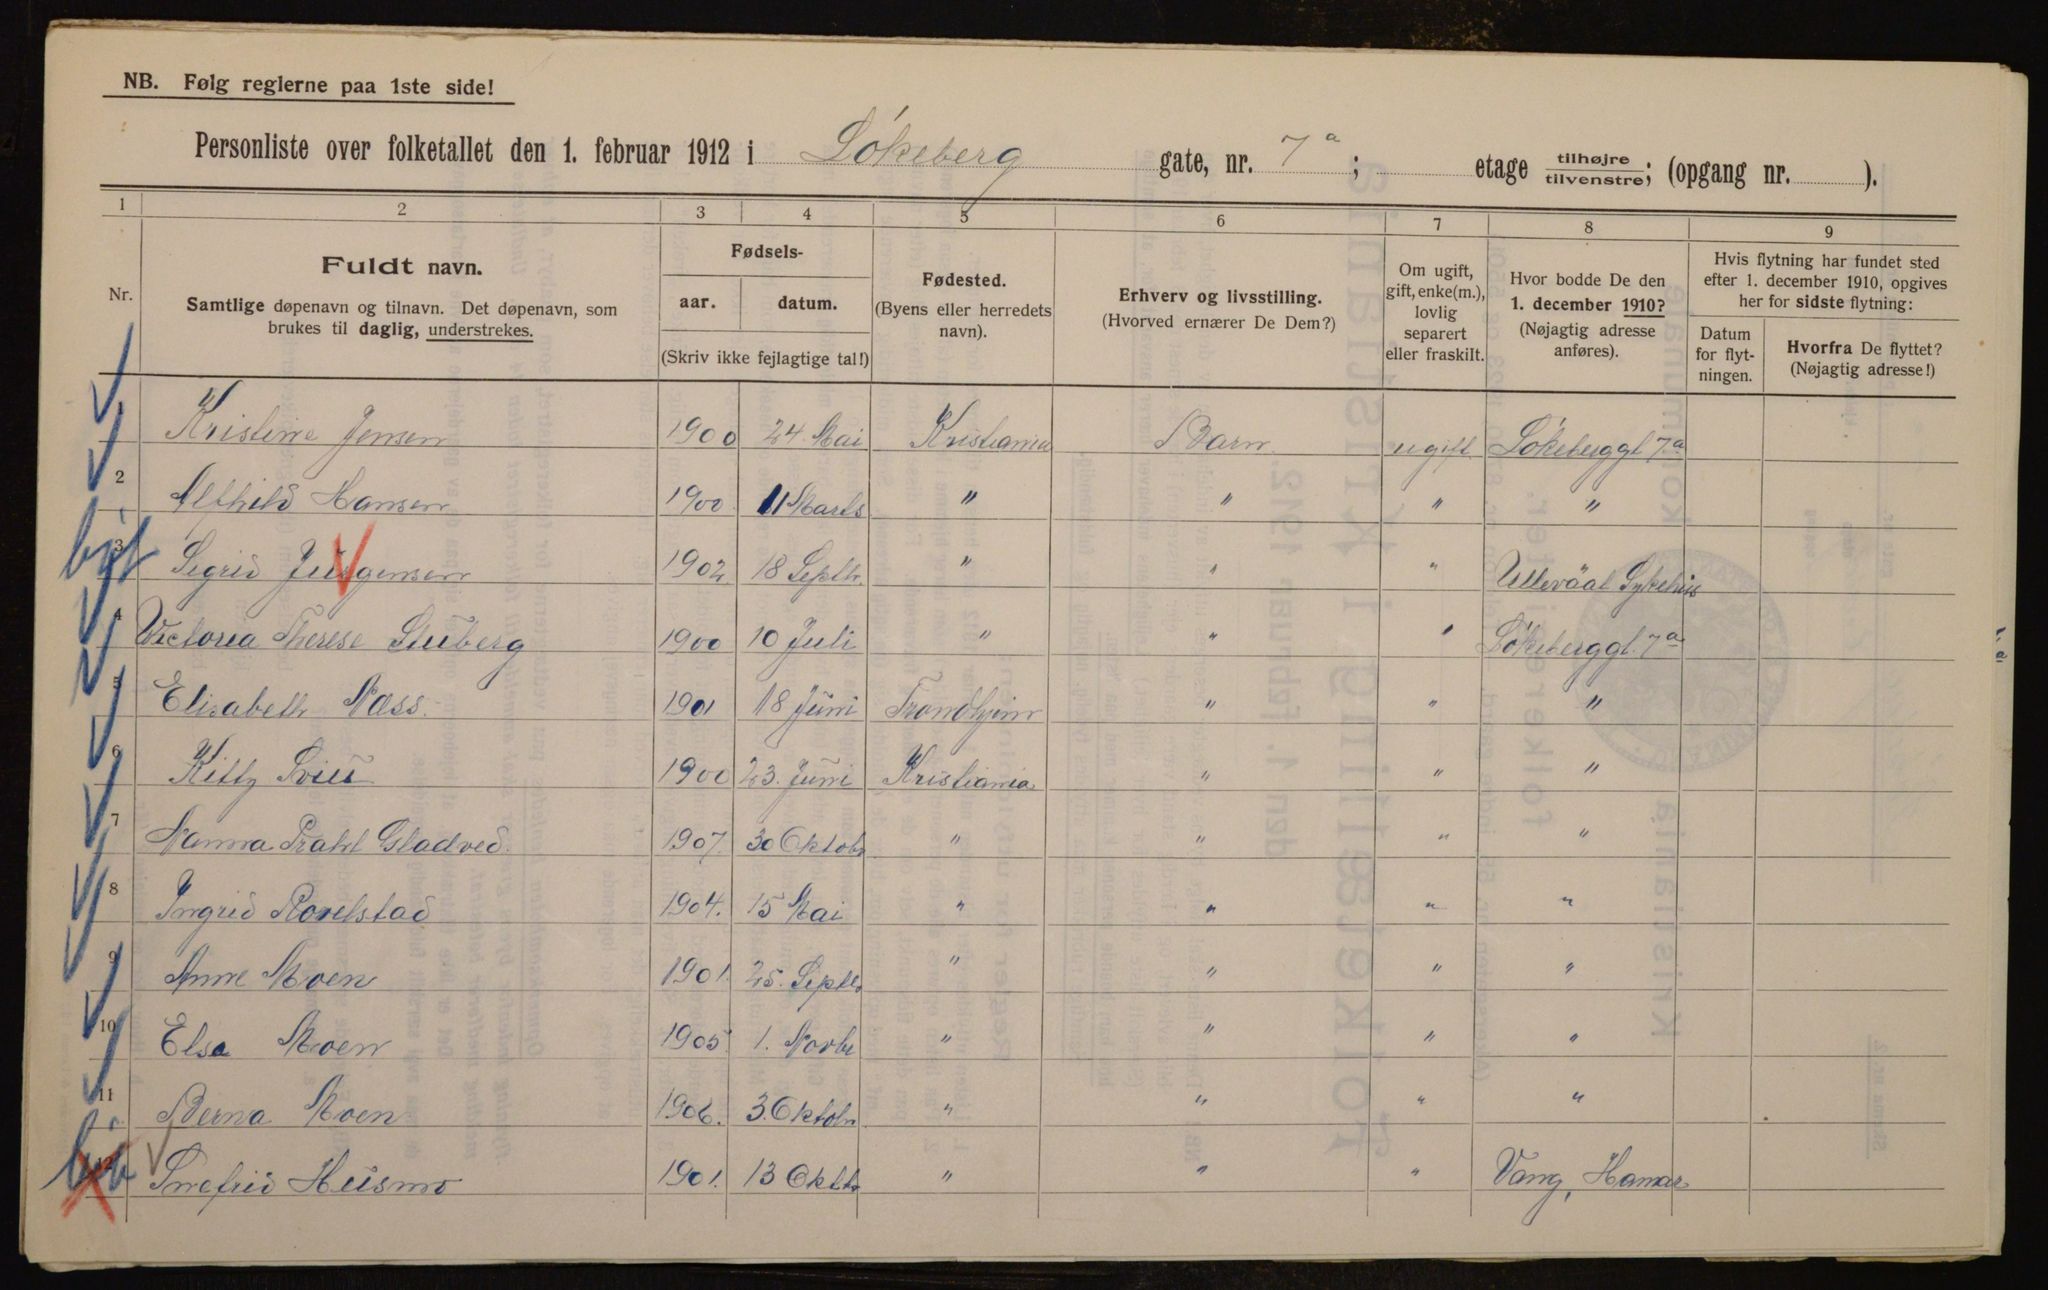 NB. Følg reglerne paa 1ste side!
Personliste over folketallet den 1. februar 1912 i Løkeberg gate, nr. 7a; etage tilhøjre tilvenstre; (opgang nr. ).
1 2 3 4 5 6 7 8 9
Nr.
Fuldt navn.
Samtlige døpenavn og tilnavn. Det døpenavn, som
brukes til daglig, understrekes.
Fødsels-
aar. datum.
(Skriv ikke fejlagtige tal!)
Fødested.
(Byens eller herredets
navn).
Erhverv og livsstilling.
(Hvorved ernærer De Dem?)
Om ugift,
gift, enke(m.),
lovlig
separert
eller fraskilt.
Hvor bodde De den
1. december 1910?
(Nøjagtig adresse
anføres).
Hvis flytning har fundet sted
efter 1. december 1910, opgives
her for sidste flytning:
Datum
for flyt-
ningen.
Hvorfra De flyttet?
(Nøjagtig adresse!)
1 Kristine Jensen 1900 24. Mai Kristiania Barn ugift Løkeberggt 7a
2 Alfhild Hansen 1900 11 Marts " " " "
3 Sigrid Jürgensen 1902 18 Septb. " " " Ullevåal Sykehus
4 Victoria Therese Stuberg 1900 10 Juli " " " Løkeberggt. 7a
5 Elisabeth Næss. 1901 18 Juni Trondhjem " " "
6 Kitty 1900 23. Juni Kristiania " " "
7 Nanna Prahl Gladved. 1907. 30 Oktobr " " " "
8 Ingrid Rovelstad 1904. 15 Mai " " " "
9 Anne Moen 1901. 25. Septb. " " " "
10 Elsa Moen 1905 1. Novbr " " " "
11 Berna Moen 1906. 3. Oktobr " " " "
12 Snefrid Husmo 1901. 13 Oktb " " " Vang, Hamar